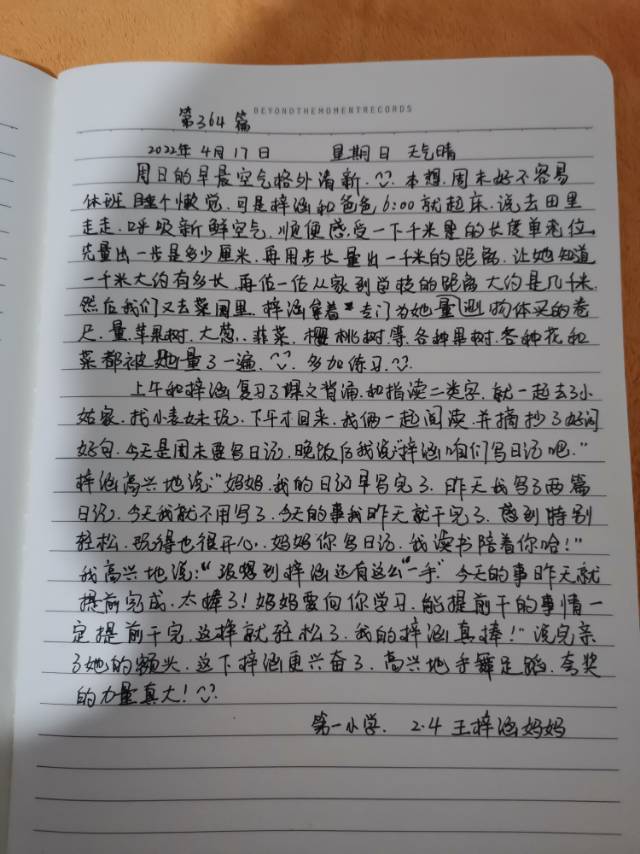 BEYONDTHEMOMENTRECORDS
第364篇
2022年 4月17日 星期日 天气晴
周日的早晨空气格外清新.本想.周末好不容易
休班睡个懒觉.可是梓涵和爸爸6:00就起床.说去田里
走走.呼吸新鲜空气.顺便感受一下千米的长度单位.
先量出一步是多少厘米.再用步长量出一千米的距离.让她知道
一千米大约有多长.再估一估从家到学校的距离大约是几千米.
然后我们又去菜园里.梓涵拿着专门为她量物体买的卷
尺.量苹果树.大葱.韭菜.樱桃树等.各种果树.各种花和
菜都被她量了一遍.多加练习.
上午和梓涵复习了课文背诵.和指读二类字.就一起去了小
姑家.找小表妹玩.下午才回来.我俩一起阅读.并摘抄了好词
好句.今天是周末要写日记.晚饭后我说:“梓涵咱们写日记吧.”
梓涵高兴地说:“妈妈.我的日记早写完了.昨天我写了两篇
日记.今天我就不用写了.今天的事我昨天就干完了.感到特别
轻松.玩得也很开心.妈妈你写日记.我读书陪着你哈!”
我高兴地说:“没想到梓涵还有这么“一手”.今天的事昨天就
提前完成.太棒了!妈妈要向你学习.能提前干的事情一
定提前干完.这样就轻松了.我的梓涵真棒!”说完亲
了她的额头.这下梓涵更兴奋了.高兴地手舞足蹈.夸奖
的力量真大!
第一小学. 2.4 王梓涵妈妈